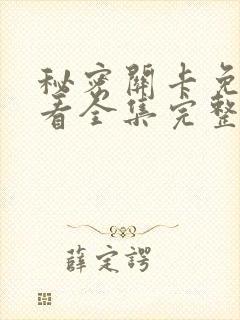 秘密關卡免
看全集完整
薛定諤